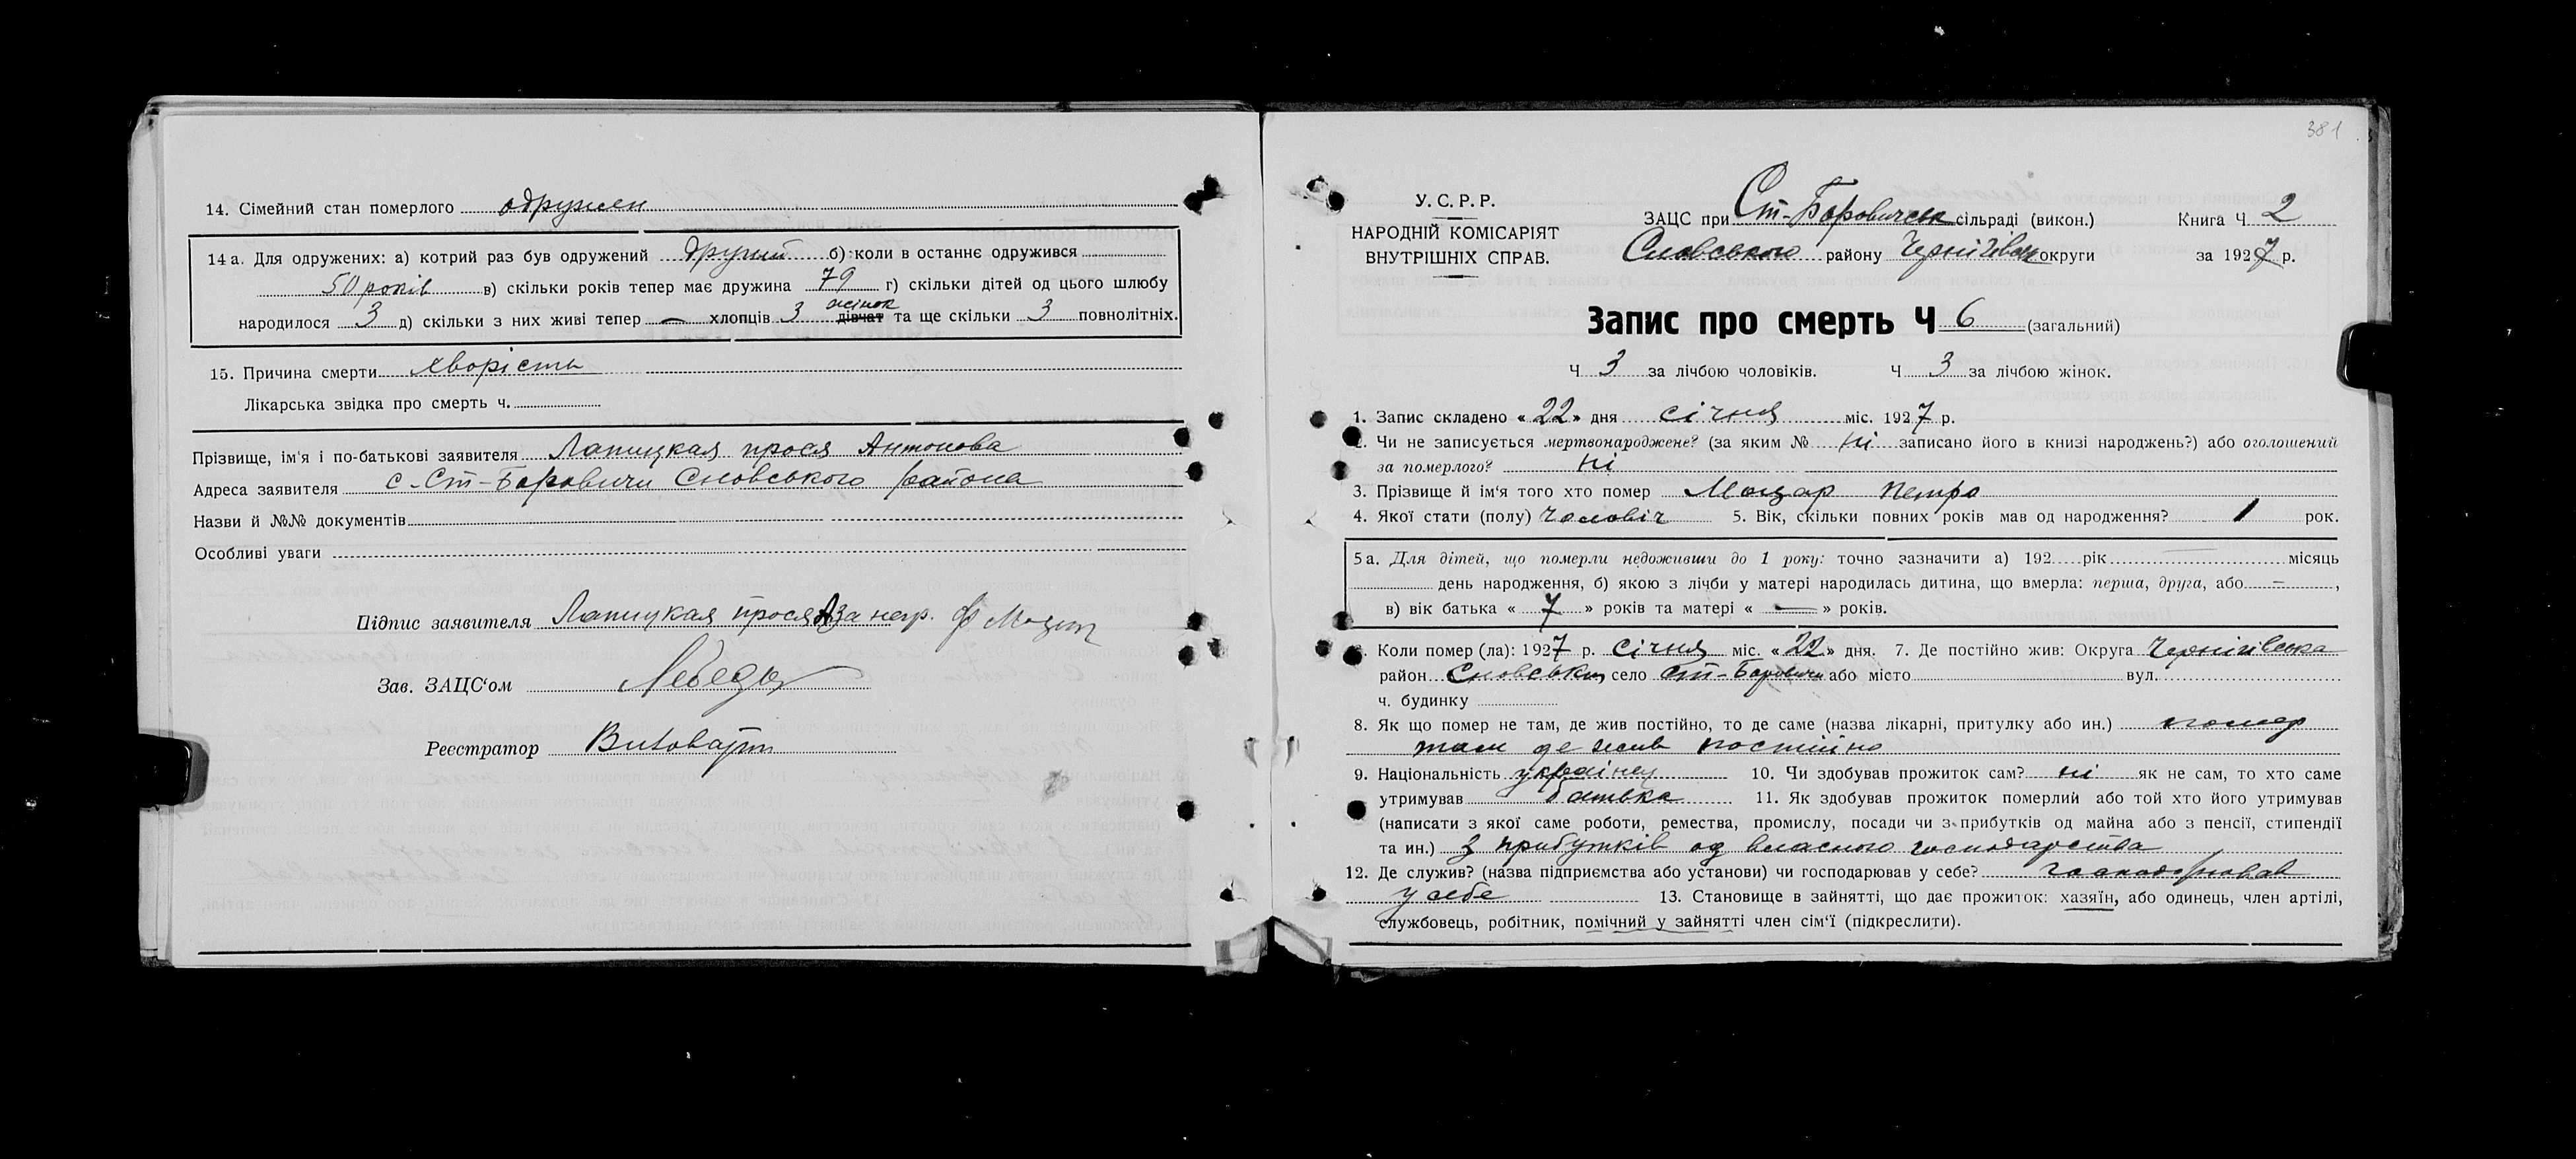 14. Сімейний стан померлого одружен
14 а. Для одружених: а) котрий раз був одружений другий б) коли в останнє одружився
50 років в) скільки років тепер має дружина 79 г) скільки дітей од цього шлюбу
жінок
народилося 3 д) скільки з них живі тепер — хлопців 3 дівчат та ще скільки 3 повнолітніх.
15. Причина смерти хворість
Лікарська звідка про смерть ч.
Прізвище, ім'я і по-батькові заявителя Лапицкая прося Антонова
Адреса заявителя с-Ст-Боровичи Сновського района
Назви й №№ документів
Особливі уваги
Підпис заявителя Лапицкая прося А за негр.
Зав. ЗАЦС'ом Лебедь
Реєстратор
381
У. С. Р. Р.
НАРОДНІЙ КОМІСАРІЯТ
ВНУТРІШНІХ СПРАВ.
ЗАЦС при Ст-Боровичськ сільраді (викон.) Книга Ч. 2
Сновського району Чернігівськ округи за 1927 р.
Запис про смерть Ч 6 (загальний)
Ч 3 за лічбою чоловіків. Ч 3 за лічбою жінок.
1. Запис складено «22» дня січня міс. 1927 р.
2. Чи не записується мертвонароджене? (за яким № ні записано його в книзі народжень?) або оголошений
за померлого? ні
3. Прізвище й ім'я того хто помер Моцар петро
4. Якої стати (полу) чоловіч 5. Вік, скільки повних років мав од народження? 1 рок.
5 а. Для дітей, що померли недоживши до 1 року: точно зазначити а) 192 рік місяць
день народження, б) якою з лічби у матері народилась дитина, що вмерла: перша, друга, або —,
в) вік батька « 7 » років та матері « — » років.
6. Коли помер (ла): 1927 р. січня міс. «22» дня. 7. Де постійно жив: Округа Чернігівська
район Сновський село Ст-Боровичи або місто вул.
ч. будинку
8. Як що помер не там, де жив постійно, то де саме (назва лікарні, притулку або ин.) помер
там де жив постійно
9. Національність українец 10. Чи здобував прожиток сам? ні як не сам, то хто саме
утримував батька 11. Як здобував прожиток померлий або той хто його утримував
(написати з якої саме роботи, ремества, промислу, посади чи з прибутків од майна або з пенсії, стипендії
та ин.) з прибутків од власного господарства
12. Де служив? (назва підприємства або установи) чи господарював у себе? господарював
у себе 13. Становище в зайнятті, що дає прожиток: хазяїн, або одинець, член артілі,
службовець, робітник, помічний у зайнятті член сім'ї (підкреслити).